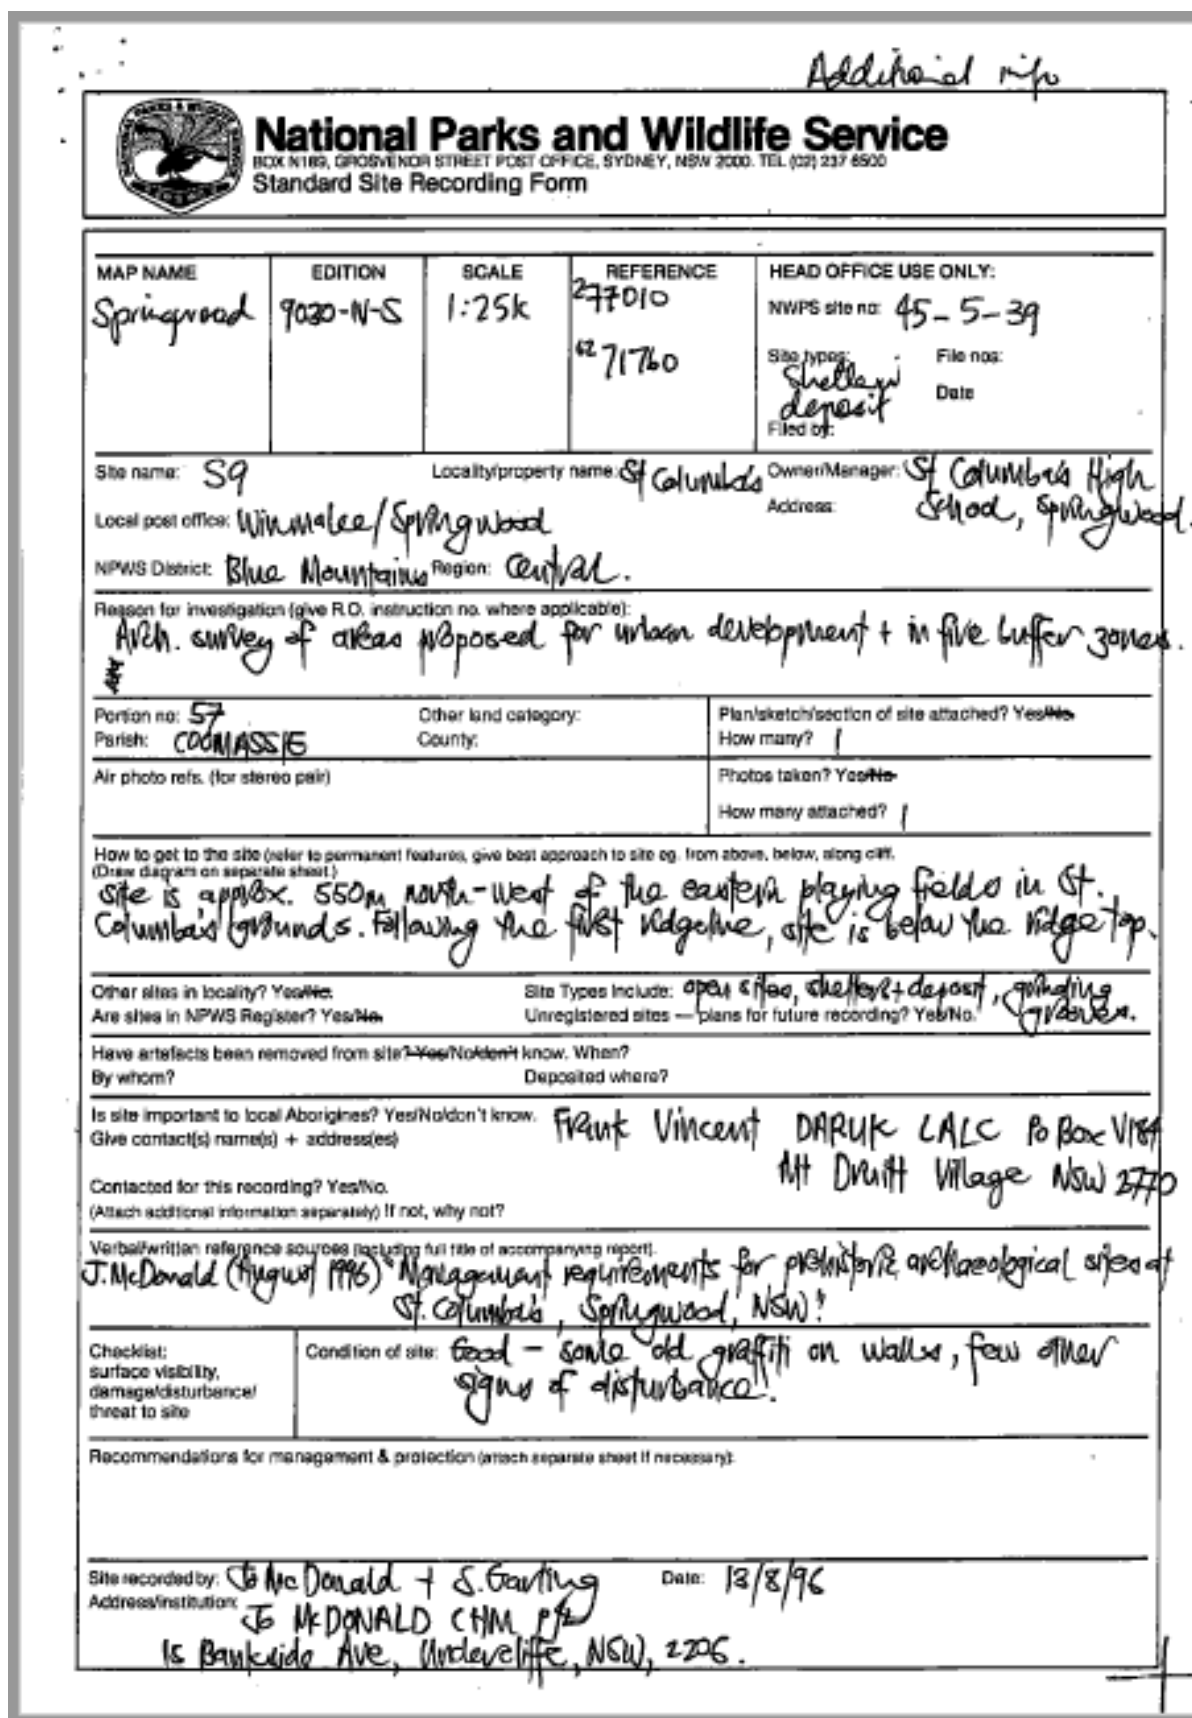 Additional info
National Parks and Wildlife Service
BOX N189, GROSVENOR STREET POST OFFICE, SYDNEY, NSW 2000. TEL (02) 237 6500
Standard Site Recording Form
MAP NAME EDITION SCALE REFERENCE HEAD OFFICE USE ONLY:
Springwood 9030-IV-S 1:25k 277010 NWPS site no: 45-5-39
6271760 Site types: File nos:
Shelter w Date
deposit
Filed by:
Site name: S9 Locality/property name: St Columba's Owner/Manager: St Columba's High
Local post office: Winmalee/Springwood Address: School, Springwood.
NPWS District: Blue Mountains Region: Central.
Reason for investigation (give R.O. instruction no. where applicable):
Arch. survey of areas proposed for urban development + in five buffer zones.
Portion no: 57 Other land category: Plan/sketch/section of site attached? Yes/No.
Parish: COOMASSIE County: How many? 1
Air photo refs. (for stereo pair) Photos taken? Yes/No
How many attached? 1
How to get to the site (refer to permanent features, give best approach to site eg. from above, below, along cliff.
(Draw diagram on separate sheet.)
Site is approx. 550m north-west of the eastern playing fields in St.
Columba's grounds. Following the first ridgeline, site is below the ridge top.
Other sites in locality? Yes/No. Site Types Include: open sites, shelters + deposit, grinding
Are sites in NPWS Register? Yes/No. Unregistered sites — plans for future recording? Yes/No. grooves.
Have artefacts been removed from site? Yes/No/don't know. When?
By whom? Deposited where?
Is site important to local Aborigines? Yes/No/don't know. Frank Vincent DARUK LALC Po Box V184
Give contact(s) name(s) + address(es) Mt Druitt Village NSW 2770
Contacted for this recording? Yes/No.
(Attach additional information separately) If not, why not?
Verbal/written reference sources (including full title of accompanying report).
J. McDonald (August 1996) "Management requirements for prehistoric archaeological sites at
St. Columba's, Springwood, NSW"
Checklist: Condition of site: Good – some old graffiti on walls, few other
surface visibility, signs of disturbance.
damage/disturbance/
threat to site
Recommendations for management & protection (attach separate sheet if necessary):
Site recorded by: Jo McDonald + S. Date: 13/8/96
Address/institution: Jo McDONALD CHM P/L
15 Bankside Ave, Undercliffe, NSW, 2206.